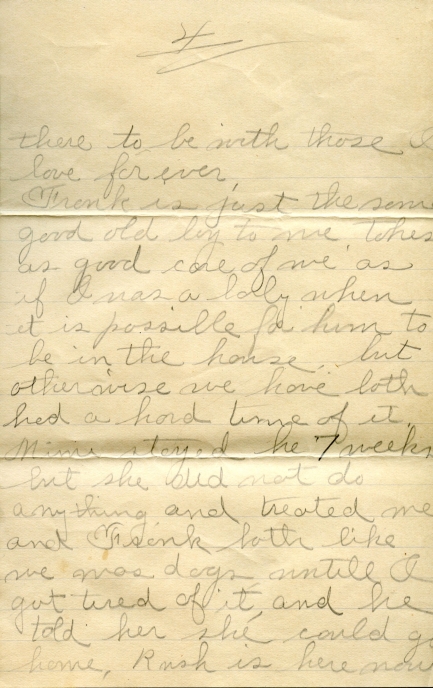 4
there to be with those I
love for ever,
Frank is just the same
good old boy to me, takes
as good care of me as
if I was a baby when
it is possible for him to
be in the house, but
otherwise we have both
had a hard time of it,
stayed 7 weeks
but she did not do
anything and treated me
and Frank both like
we was dogs, untill I
got tired of it, and he
told her she could go
home, Rush is here now